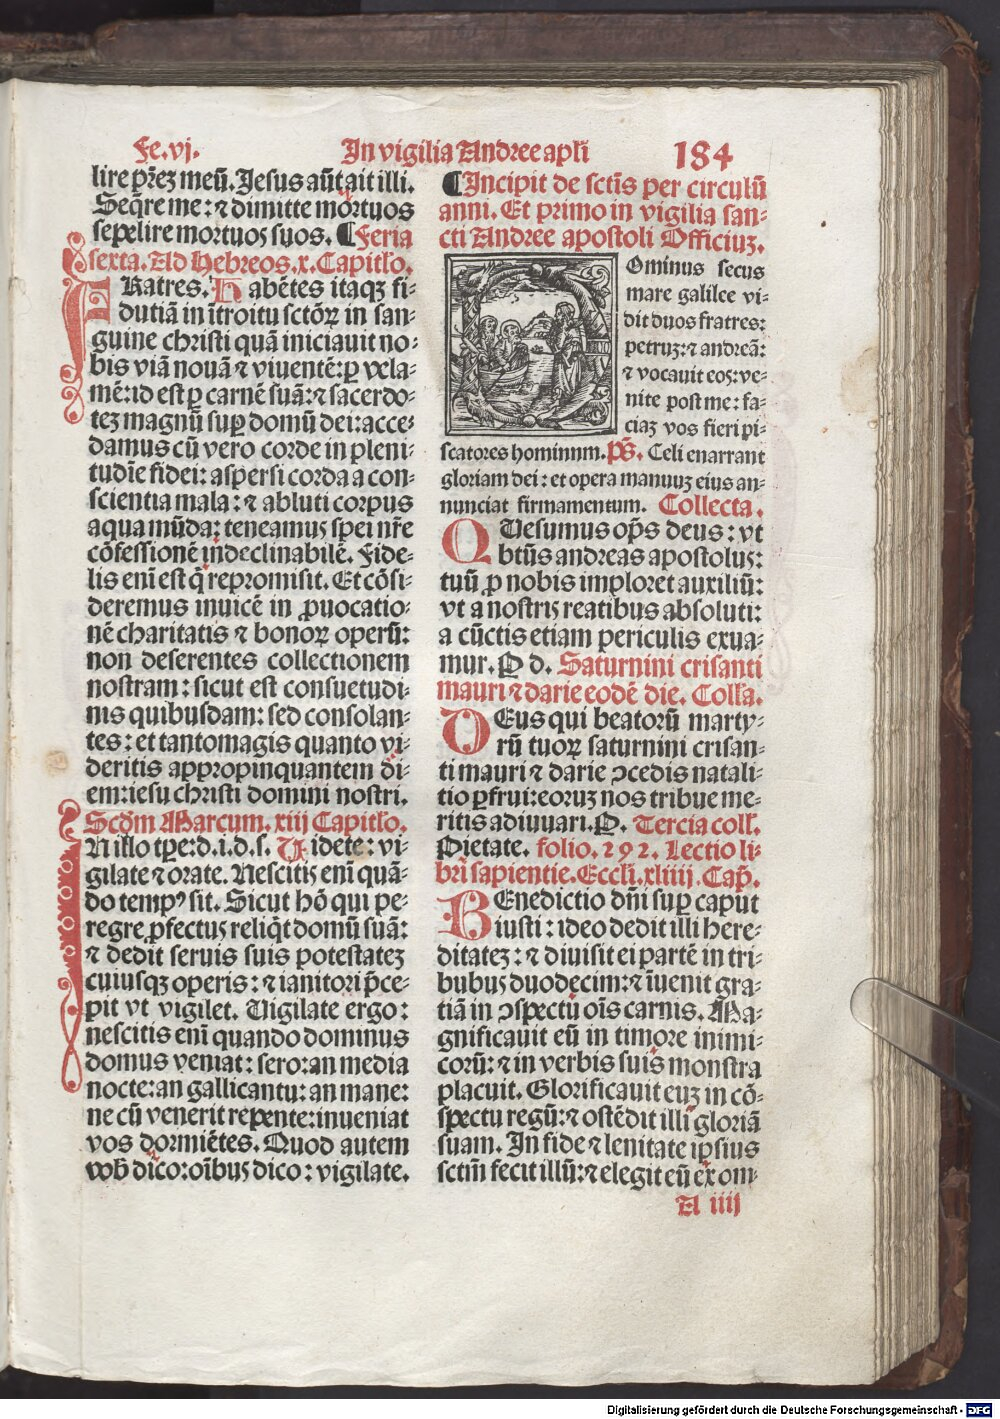 Fe.vj.
In vigilia Andree apl̄i
184
lire p̄rēz meū. Jesus aūt ait illi.
Seq̄re me: ⁊ dimitte mortuos
sepelire mortuos suos. ¶ Feria
sexta. Ad Hebreos. x. Capitl̄o.
FRatres. Habētes itaqꝫ fi-
dutiā in itroitu sctōꝝ in san-
guine christi quā iniciauit no-
bis viā nouā ⁊ viuentē: ꝑ vela-
mē: id est ꝑ carnē suā: ⁊ sacerdo-
teꝫ magnū suꝑ domū dei: acce-
damus cū vero corde in pleni-
tudīe fidei: aspersi corda a con-
scientia mala: ⁊ abluti corpus
aqua mūda: teneamus spei nr̄e
cōfessionē indeclinabilē. Fide-
lis enī est q̄ repromisit. Et cōsi-
deremus inuicē in ꝓuocatio-
nē charitatis ⁊ bonoꝝ operū:
non deserentes collectionem
nostram: sicut est consuetudi-
nis quibusdam: sed consolan-
tes: et tantomagis quanto vi-
deritis appropinquantem di-
em: iesu christi domini nostri.
Scdm̄ Marcum. xiij Capitl̄o.
IN illo tꝑe: d. i. d. s. Uidete: vi-
gilate ⁊ orate. Nescitis enī quā-
do tempꝰ sit. Sicut hō qui pe-
regre ꝓfectus reliq̄t domū suā:
⁊ dedit seruis suis potestateꝫ
cuiusqꝫ operis: ⁊ ianitori p̄ce-
pit vt vigilet. Uigilate ergo:
nescitis enī quando dominus
domus veniat: sero: an media
nocte: an gallicantu: an mane:
ne cū venerit repente: inueniat
vos dormiētes. Quod autem
vob̄ dico: oībus dico: vigilate.
¶ Incipit de sctīs per circulū
anni. Et primo in vigilia san-
cti Andree apostoli Officiuꝫ.
DOminus secus
mare galilee vi-
dit duos fratres:
petruꝫ: ⁊ andreā:
⁊ vocauit eos: ve-
nite post me: fa-
ciaꝫ vos fieri pi-
scatores hominum. ps̄. Celi enarrant
gloriam dei: et opera manuuꝫ eius an-
nunciat firmamentum. Collecta.
QUesumus op̄s deus: vt
btūs andreas apostolus:
tuū ꝓ nobis imploret auxiliū:
vt a nostris reatibus absoluti:
a cūctis etiam periculis exua-
mur. P d. Saturnini crisanti
mauri ⁊ darie eodē die. Coll̄a.
DEus qui beatorū marty-
rū tuoꝝ saturnini crisan-
ti mauri ⁊ darie ↄcedis natali-
tio ꝑfrui: eoruꝫ nos tribue me-
ritis adiuuari. P. Tercia coll̄.
Pietate. folio. 292. Lectio li-
bri sapientie. Eccl̄i. xliiij. Cap̄.
BEnedictio dn̄i suꝑ caput
iusti: ideo dedit illi here-
ditateꝫ: ⁊ diuisit ei partē in tri-
bubus duodecim: ⁊ īuenit gra-
tiā in ↄspectu oīs carnis. Ma-
gnificauit eū in timore inimi-
corū: ⁊ in verbis suis monstra
placuit. Glorificauit euꝫ in cō-
spectu regū: ⁊ ostēdit illi gloriā
suam. In fide ⁊ lenitate ipsius
sctm̄ fecit illū: ⁊ elegit eū ex om-
A iiij
Digitalisierung gefördert durch die Deutsche Forschungsgemeinschaft - DFG